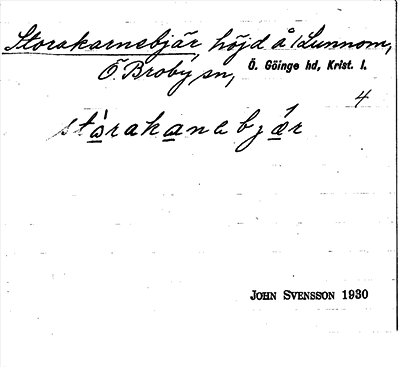 Storakarnsbjär, höjd å Lunnom,
Ö. Broby sn, Ö. Göinge hd, Krist. l.
4
stàrakanabjǽr
JOHN SVENSSON 1930